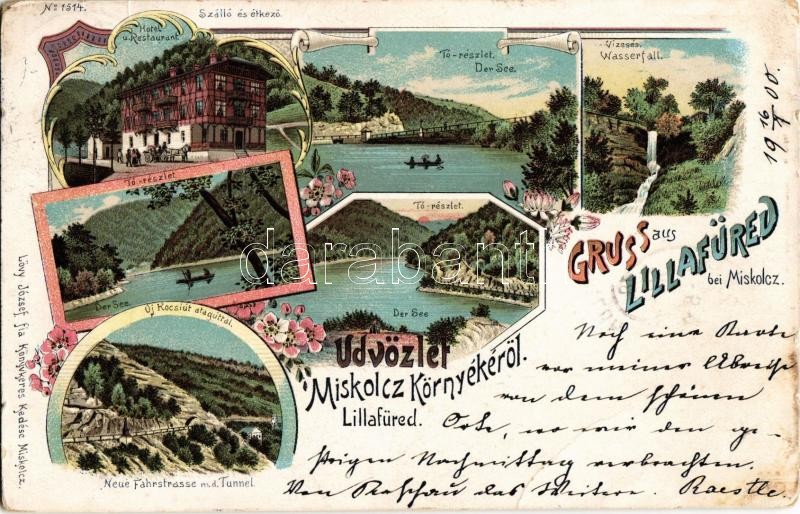 No 1514.
Szálló és étkező.
Hotel
u. Restaurant.
Tó-részlet.
Der See.
Vizesés.
Wasserfall.
19 16/X 00.
Tó-részlet.
Der See.
Tó-részlet.
Der See
GRUSS aus
LILLAFÜRED
bei Miskolcz.
Uj Kocsiút alagúttal.
Neue Fahrstrasse m.d. Tunnel.
Üdvözlet
Miskolcz Környékéről.
Lillafüred.
Lövy József fia Könyvkeres Kedése Miskolcz.
darabanth
Noch eine Karte
vor meiner Abreise
von dem schönen
Orte, wo wir den ge-
strigen Nachmittag verbrachten.
Von Kaschau das Weitere.